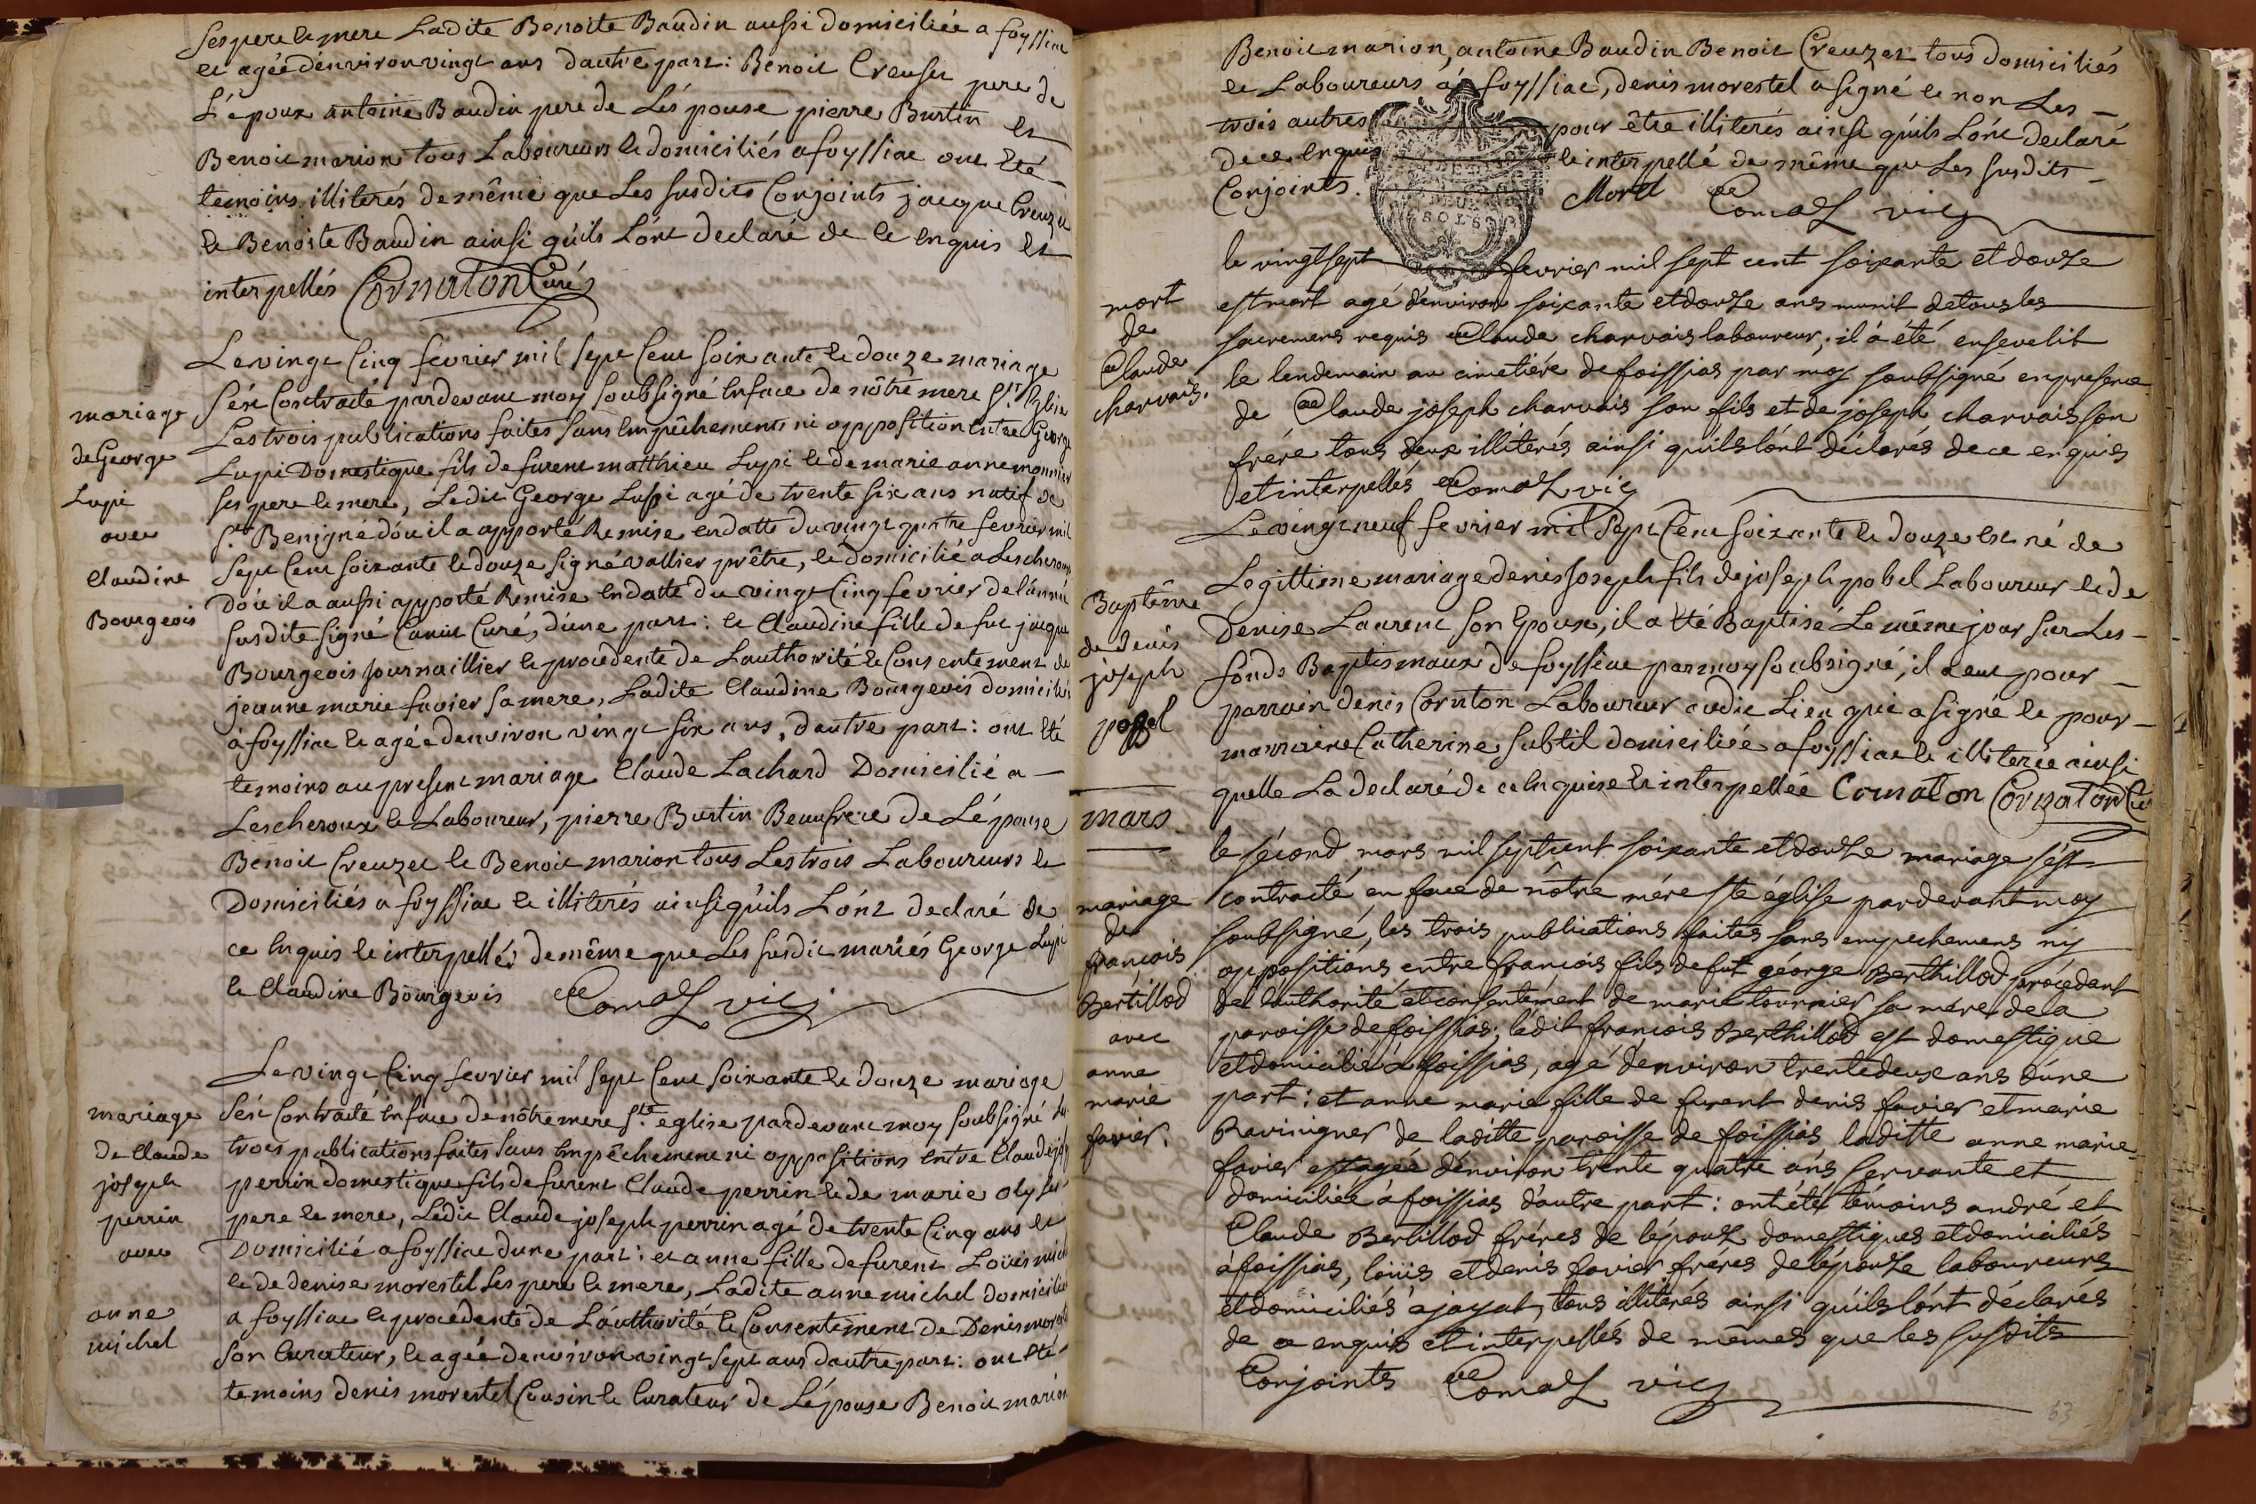 ses pere et mere Ladite Benoite Baudin aussi domiciliée a foyssiac
et agée d'environ vingt ans d'autre part: Benoit Creuset pere de
L'époux antoine Baudin pere de L'épouse pierre Burtin et
Benoit marion tous Laboureurs et domiciliés a foyssiac ont été
temoins illiterés de même que Les susdits Conjoints jacque Creuzet
et Benoite Baudin ainsi qu'ils L'ont declaré de ce enquis et
interpellés Cornaton Curé
mariage
de George
Lupi
avec
Claudine
Bourgeois
Le vingt Cinq fevrier mil sept Cent soixante et douze mariage
s'est Contracté pardevant moy soubsigné en face de nôtre mere Ste Eglise
Les trois publications faites sans empêchements ni opposition entre George
Lupi Domestique fils de furent matthieu Lupi et de marie anne monnier
ses pere et mere, Ledit George Lupi agé de trente six ans natif de
St Benigne d'ou il a apporté Remise en datte du vingt quatre fevrier mil
sept Cent soixante et douze signé vallier prêtre, et domicilié a Lescheroux
D'ou il a aussi apporté Remise en datte du vingt Cinq fevrier de l'année
susdite signé Curé, d'une part: et Claudine fille de fut jacque
Bourgeois journaillier et procedente de L'authorité et Consentement de
jeanne marie favier sa mere, Ladite Claudine Bourgeois domiciliée
à foyssiac et agée d'environ vingt six ans, d'autre part: ont été
temoins au present mariage Claude Lachard Domicilié a
Lescheroux et Laboureur, pierre Burtin Beaufrere de L'épouse
Benoit Creuzet et Benoit marion tous Les trois Laboureurs et
Domiciliés a foyssiac et illiterés ainsi qu'ils L'ont declaré de
ce enquis et interpellés de même que Les susdit mariés George Lupi
et Claudine Bourgeois vic
mariage
de Claude
joseph
perrin
avec
anne
michel
Le vingt Cinq fevrier mil sept Cent soixante et douze mariage
s'est Contracté en face de nôtre mere Ste eglise pardevant moy soubsigné Les
trois publications faites sans empêchement ni oppositions entre Claude joseph
perrin domestique fils de furent Claude perrin et de marie oly ses
pere et mere, Ledit Claude joseph perrin agé de trente Cinq ans et
Domicilié a foyssiac d'une part: et anne fille de furent Loüis michel
et de denise morestel ses pere et mere, Ladite anne michel domiciliée
a foyssiac et procedente de L'authorité et Consentement de Denis morestel
son Curateur, et agée d'environ vingt sept ans d'autre part: ont été
temoins denis morestel Cousin et Curateur de L'épouse Benoit marion
Benoit marion, antoine Baudin Benoit Creuzet tous domiciliés
et Laboureurs à foyssiac, denis morestel a signé et non Les
trois autres pour être illiterés ainsi qu'ils L'ont declaré
de ce enquis et interpellé de même que Les susdits
Conjoints. vic
mort
de
Claude
charvais.
le vingt sept fevrier mil sept cent soixante et douze
est mort agé d'environ soixante et douze ans munit de tous les
sacremens requis Claude charvais laboureur; il à été ensevelit
le lendemain au cimetiére de foissias par moy soubsigné en presence
de Claude joseph charvais son fils et de joseph charvais son
frére tous deux illitérés ainsi quils l'ont déclarés de ce enquis
et interpellés vic
Baptême
de denis
joseph
Le vingt neuf fevrier mil sept Cent soixante et douze est né de
Legittime mariage denis joseph fils de joseph pobel Laboureur et de
Denise Laurent son Epouse, il a été Baptisé Le même jour sur Les
fonds Baptismaux de foyssiac par moy soubsigné; il a eut pour
parrain denis Cornton Laboureur audit Lieu qui a signé et pour
marraine Catherine subtil domiciliée a foyssiac et illiterée ainsi
quelle La declaré de ce enquise et interpellée Cornaton Cornaton Cu
mars
mariage
de
françois
Bertillod
avec
anne
marie
favier.
le sécond mars mil sept cent soixante et douze mariage s'est
contracté en face de nôtre mére ste église pardevant moy
soubsigné, les trois publications faites sans empechemens ny
oppositions entre françois fils de fut géorge Berthillod procédant
de l'authorité et consentement de marie tournier sa mére de la
paroisse de foissias; lédit françois Berthillod est domestique
et domicilié à foissias, agé d'environ trente deux ans d'une
part: et anne marie fille de furent denis favier et marie
Ravinigner de laditte paroisse de foissias laditte anne marie
favier est agée d'environ trente quatre ans servante et
domiciliée à foissias d'autre part: ont été témoins andré et
Claude Bertillod fréres de l'époux domestiques et domiciliés
à foissias, loüis et denis favier fréres de l'épouze laboureurs
et domiciliés a jayat, tous illitérés ainsi qu'ils l'ont déclarés
de ce enquis et interpellés de mêmes que les susdits
Conjoints vic
63